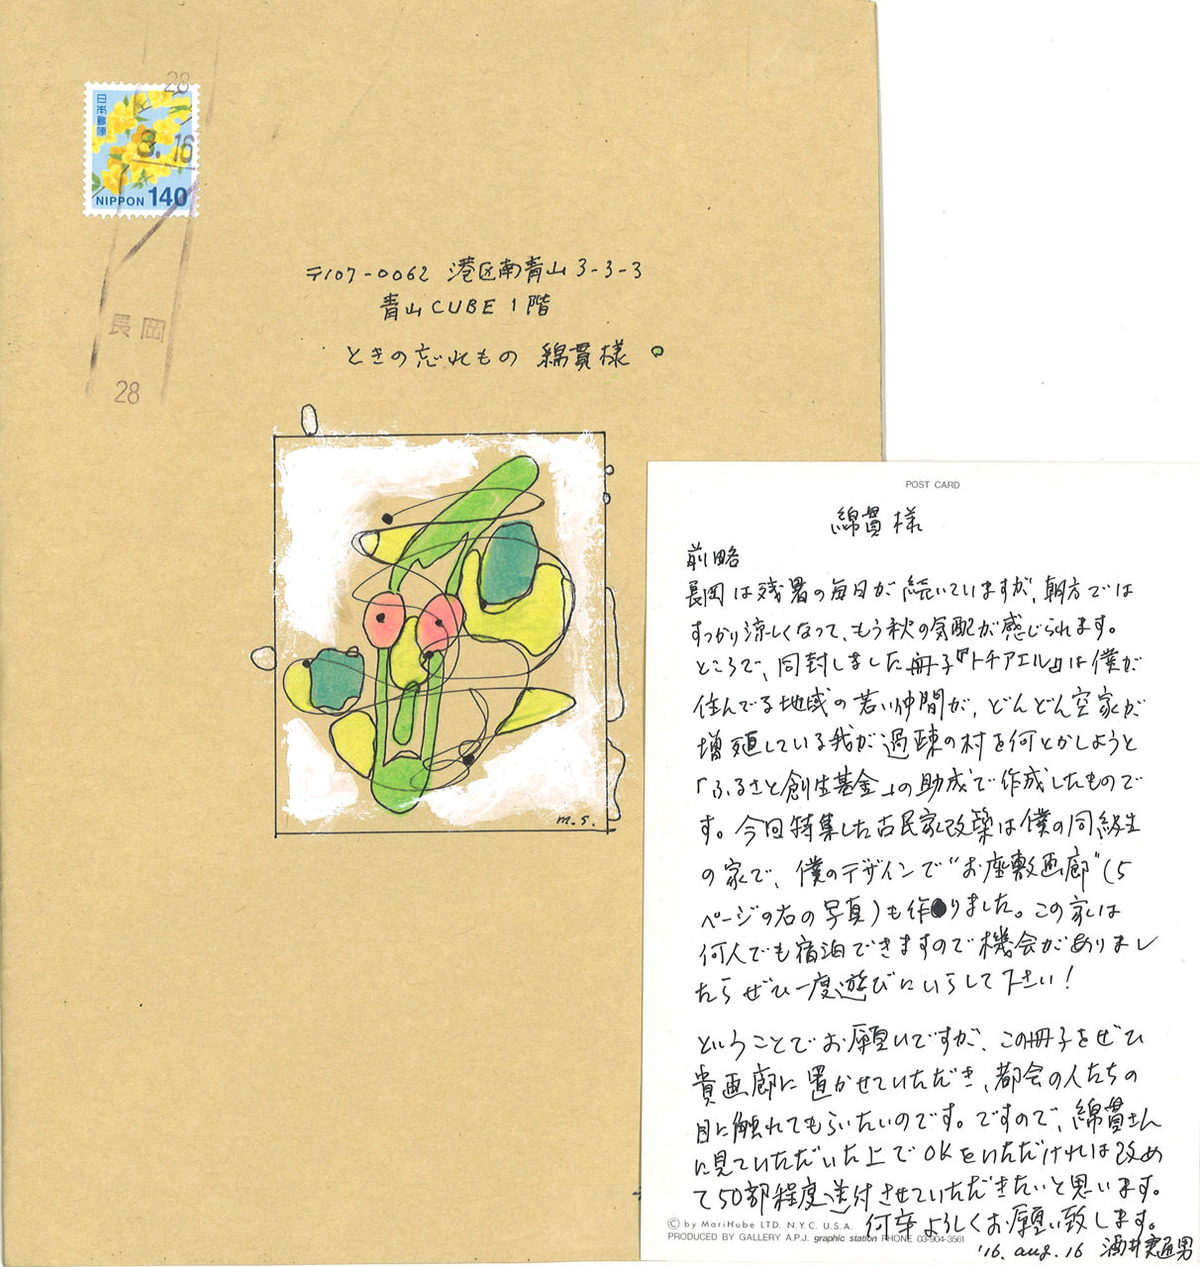 28
日本郵便
8.16
NIPPON 140
長岡
28
〒107-0062 港区南青山3-3-3
青山CUBE 1階
ときの忘れもの 綿貫様
m.s.
POST CARD
綿貫様
前略
長岡は残暑の毎日が続いていますが、朝方では
すっかり涼しくなって、もう秋の気配が感じられます。
ところで、同封しました冊子『トチアエル』は僕が
住んでる地域の若い仲間が、どんどん空家が
増殖している我が過疎の村を何とかしようと
「ふるさと創生基金」の助成で作成したもので
す。今回特集した古民家改築は僕の同級生
の家で、僕のデザインで“お座敷画廊”(5
ページの右の写真)も作りました。この家は
何人でも宿泊できますので機会がありまし
たらぜひ一度遊びにいらして下さい!
ということでお願いですが、この冊子をぜひ
貴画廊に置かせていただき、都会の人たちの
目に触れてもらいたいのです。ですので、綿貫さん
に見ていただいた上でOKをいただければ改め
て50部程度送付させていただきたいと思います。
何卒よろしくお願い致します。
©by MariHube LTD. N.Y.C. U.S.A.
PRODUCED BY GALLERY A.P.J. graphic station PHONE 03-904-3561
'16. aug. 16 酒井実通男